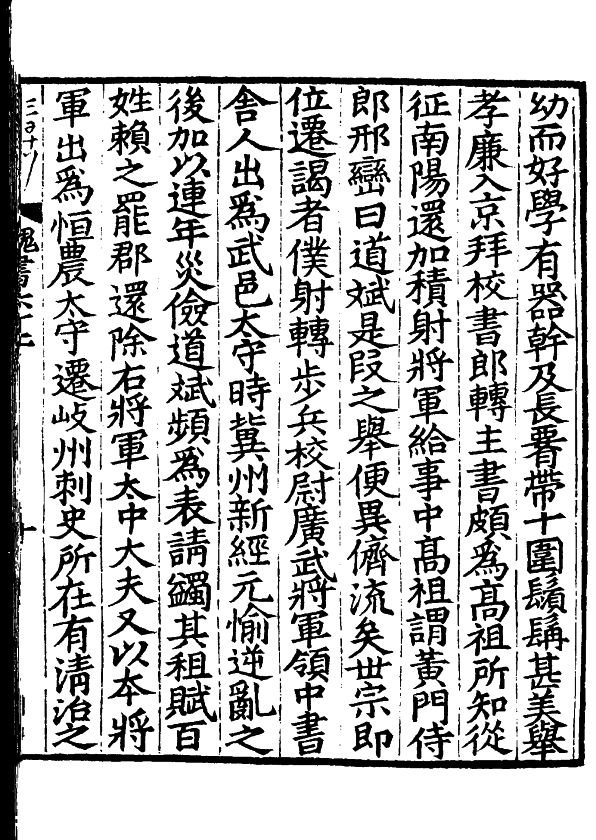 幼而好學有器幹及長腰帶十圍鬚髯甚美舉
孝廉入京拜校書郎轉主書頗爲高祖所知從
征南陽還加積射將軍給事中高祖謂黃門侍
郎邢巒曰道斌是段之舉便異儕流矣世宗即
位遷謁者僕射轉步兵校尉廣武將軍領中書
舍人出爲武邑太守時冀州新經元愉逆亂之
後加以連年災儉道斌頻爲表請蠲其租賦百
姓賴之罷郡還除右將軍太中大夫又以本將
軍出爲恒農太守遷岐州刺史所在有清治之
魏書六十二
十